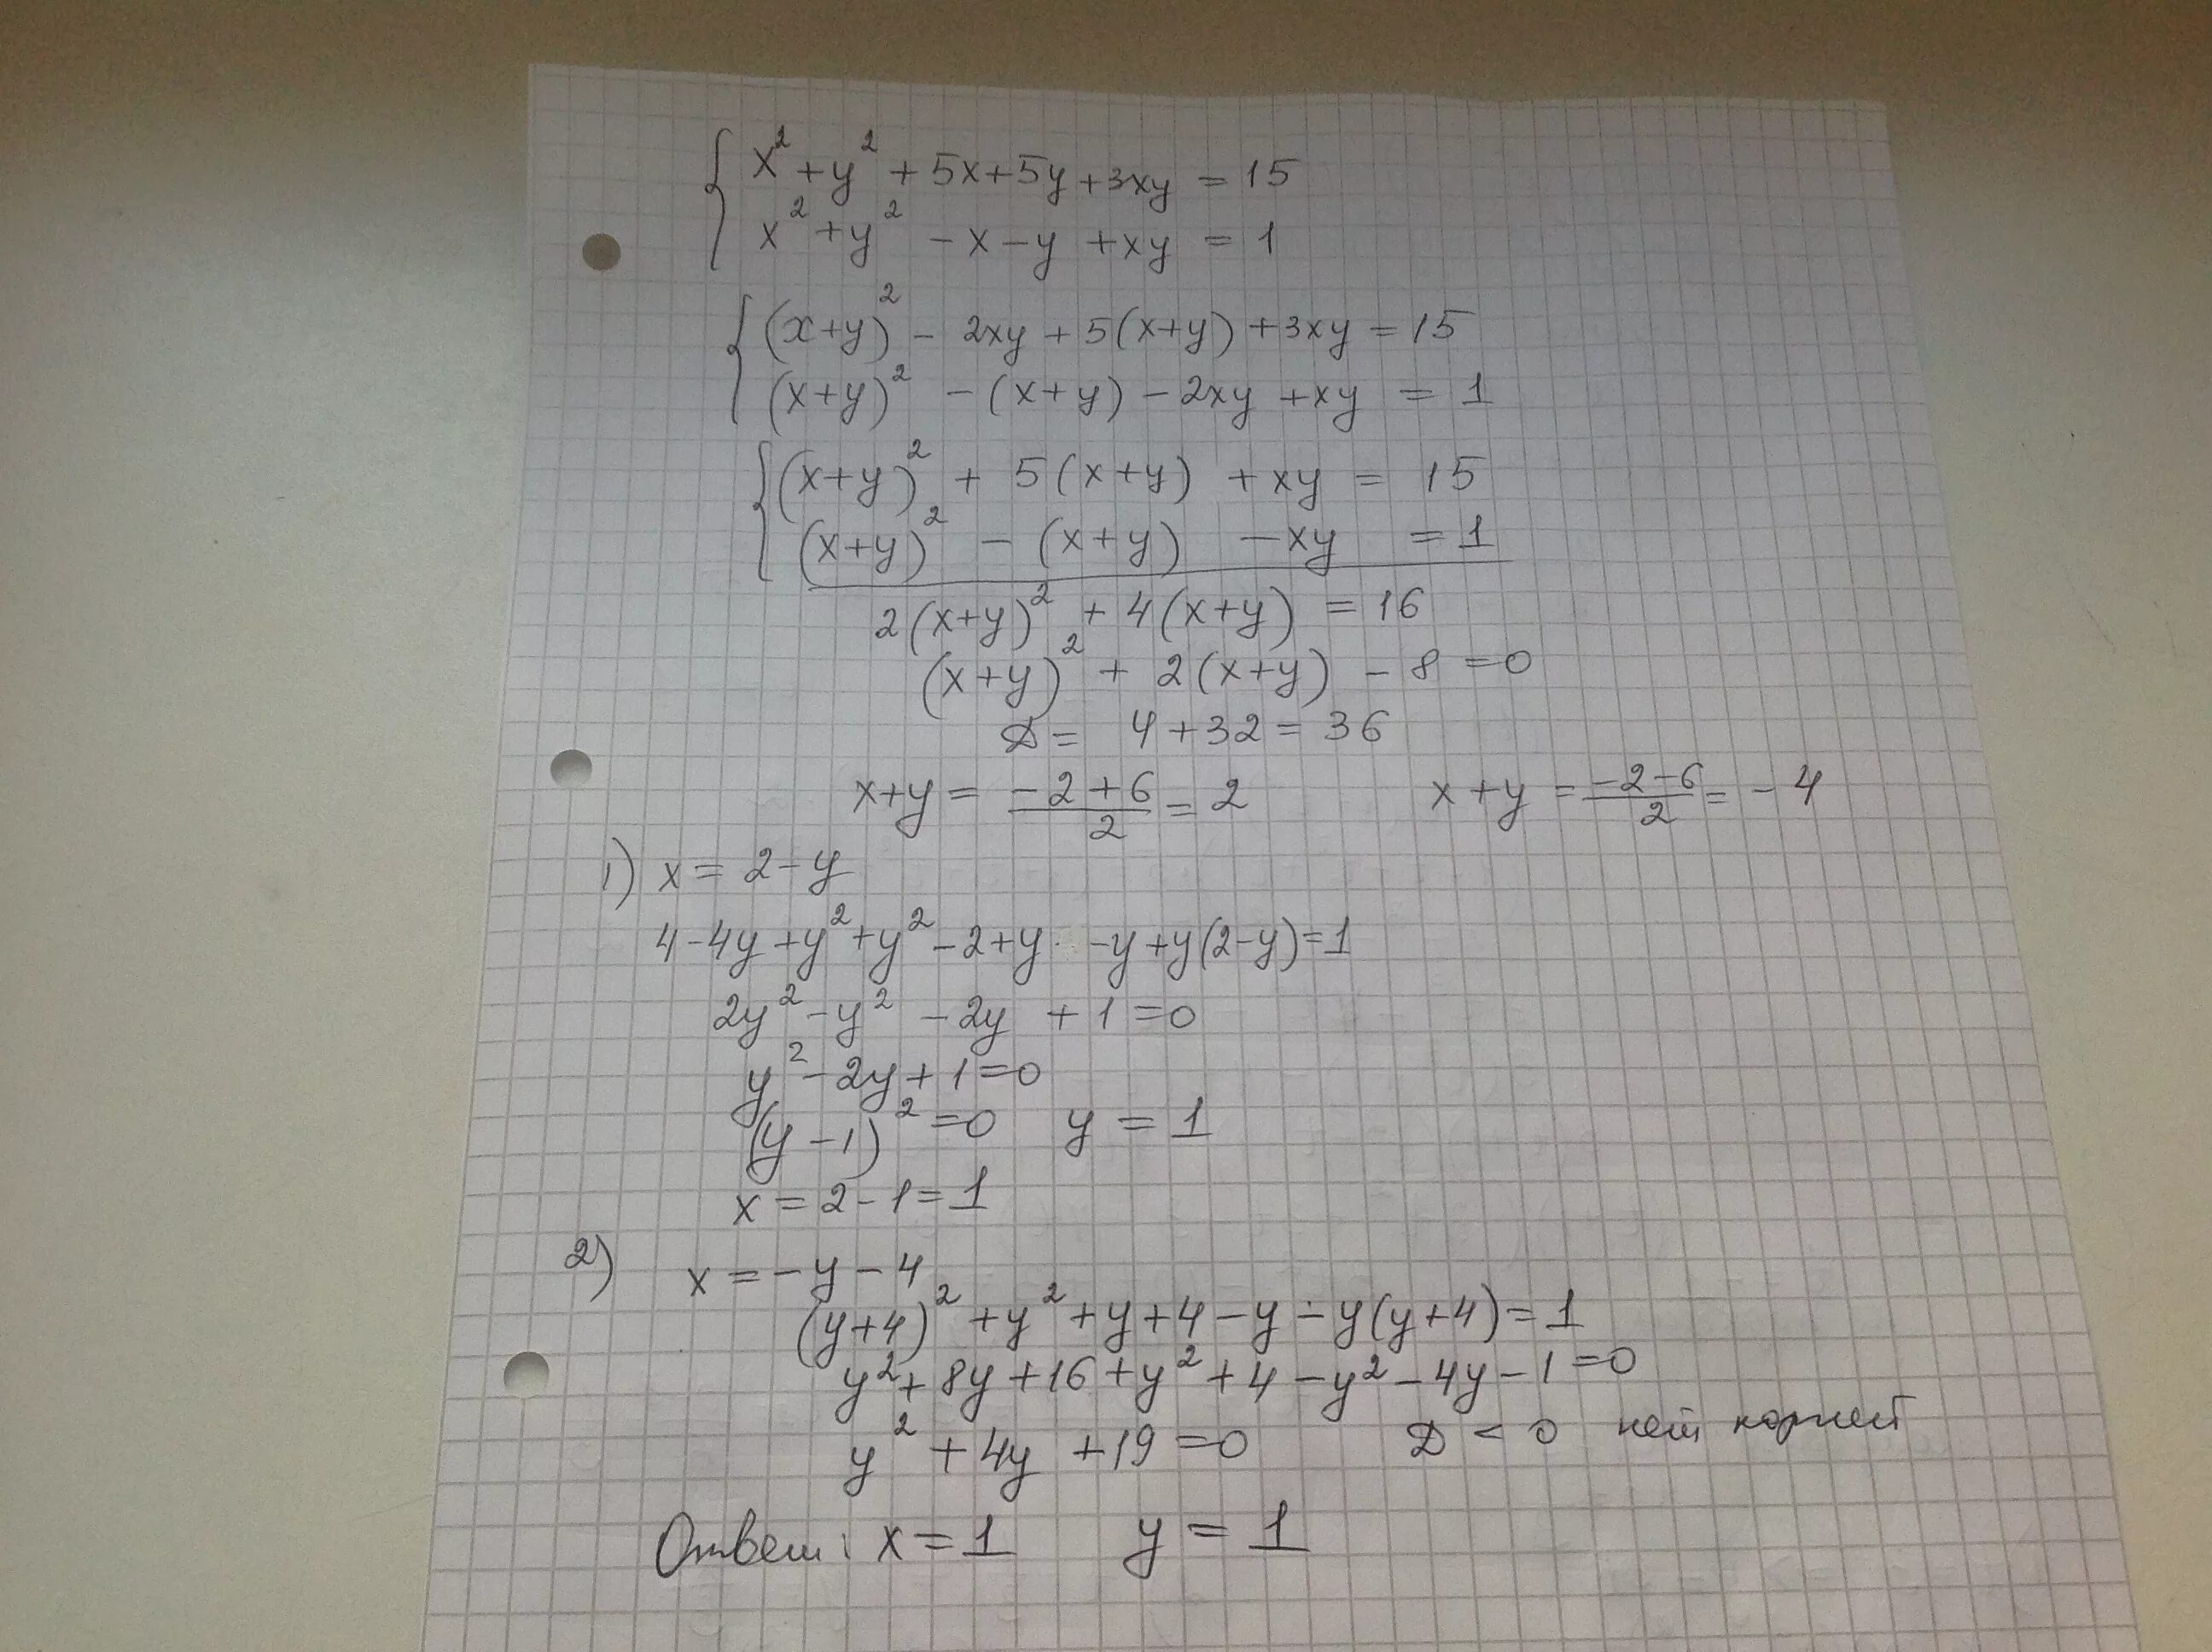 { x² + y² + 5x + 5y + 3xy = 15
x² + y² - x - y + xy = 1
{ (x+y)² - 2xy + 5(x+y) + 3xy = 15
(x+y)² - (x+y) - 2xy + xy = 1
{ (x+y)² + 5(x+y) + xy = 15
(x+y)² - (x+y) - xy = 1
2(x+y)² + 4(x+y) = 16
(x+y)² + 2(x+y) - 8 = 0
D = 4 + 32 = 36
x+y = (-2+6)/2 = 2 x+y = (-2-6)/2 = -4
1) x = 2-y
4-4y+y²+y²-2+y -y+y(2-y)=1
2y²-y²-2y+1=0
y²-2y+1=0
(y-1)²=0 y=1
x=2-1=1
2) x=-y-4
(y+4)²+y²+y+4-y-y(y+4)=1
y²+8y+16+y²+4-y²-4y-1=0
y²+4y+19=0 D<0 нет корней
Ответ: x=1 y=1